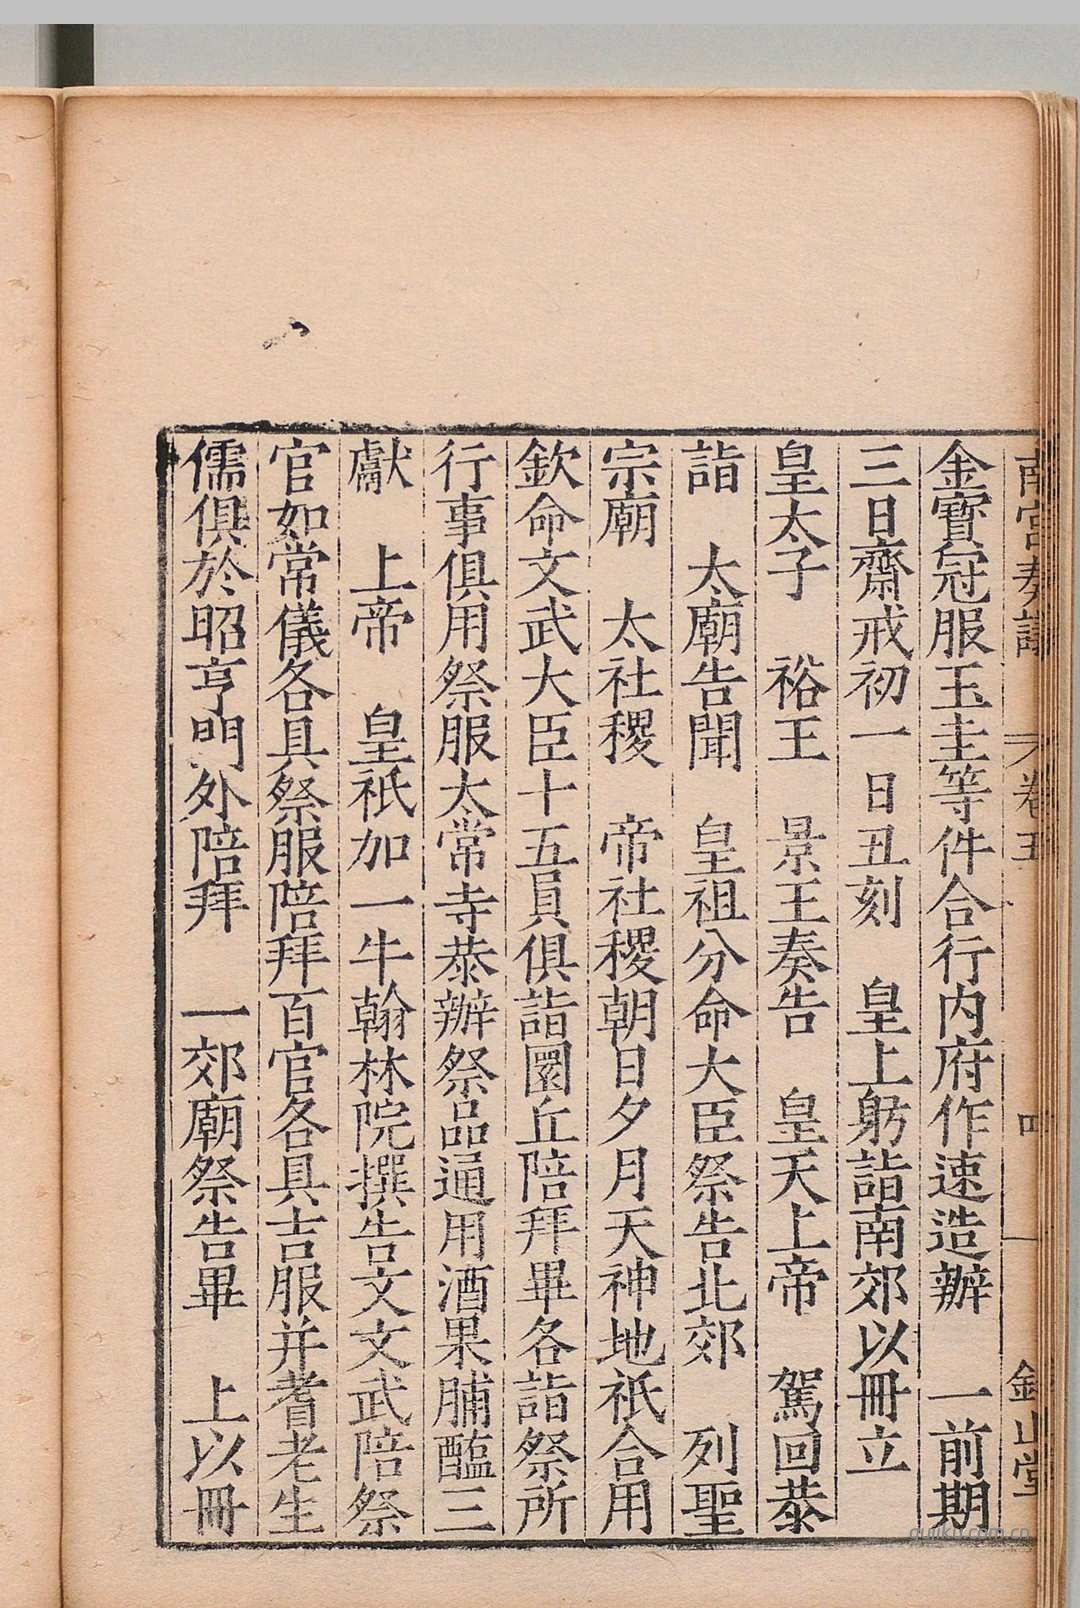 南宮奏議 卷五 鈐山堂
金寶冠服玉圭等件合行內府作速造辦　一前期
三日齋戒初一日丑刻　皇上躬詣南郊以冊立
皇太子　裕王　景王奏告　皇天上帝　駕回恭
詣　太廟告聞　皇祖分命大臣祭告北郊　列聖
宗廟　太社稷　帝社稷朝日夕月天神地祇合用
欽命文武大臣十五員俱詣圜丘陪拜畢各詣祭所
行事俱用祭服太常寺恭辦祭品通用酒果脯醢三
獻　上帝　皇祇加一牛翰林院撰告文文武陪祭
官如常儀各具祭服陪拜百官各具吉服并耆老生
儒俱於昭亨門外陪拜　一郊廟祭告畢　上以冊